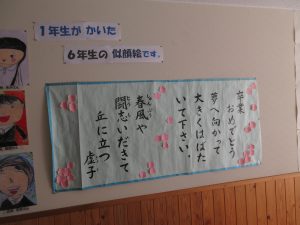 1年生が かいた
6年生の 似顔絵です。
卒業
おめでとう
夢へ向かって
大きくはばた
いて下さい。
春風や
闘志いだきて
丘に立つ
虚子